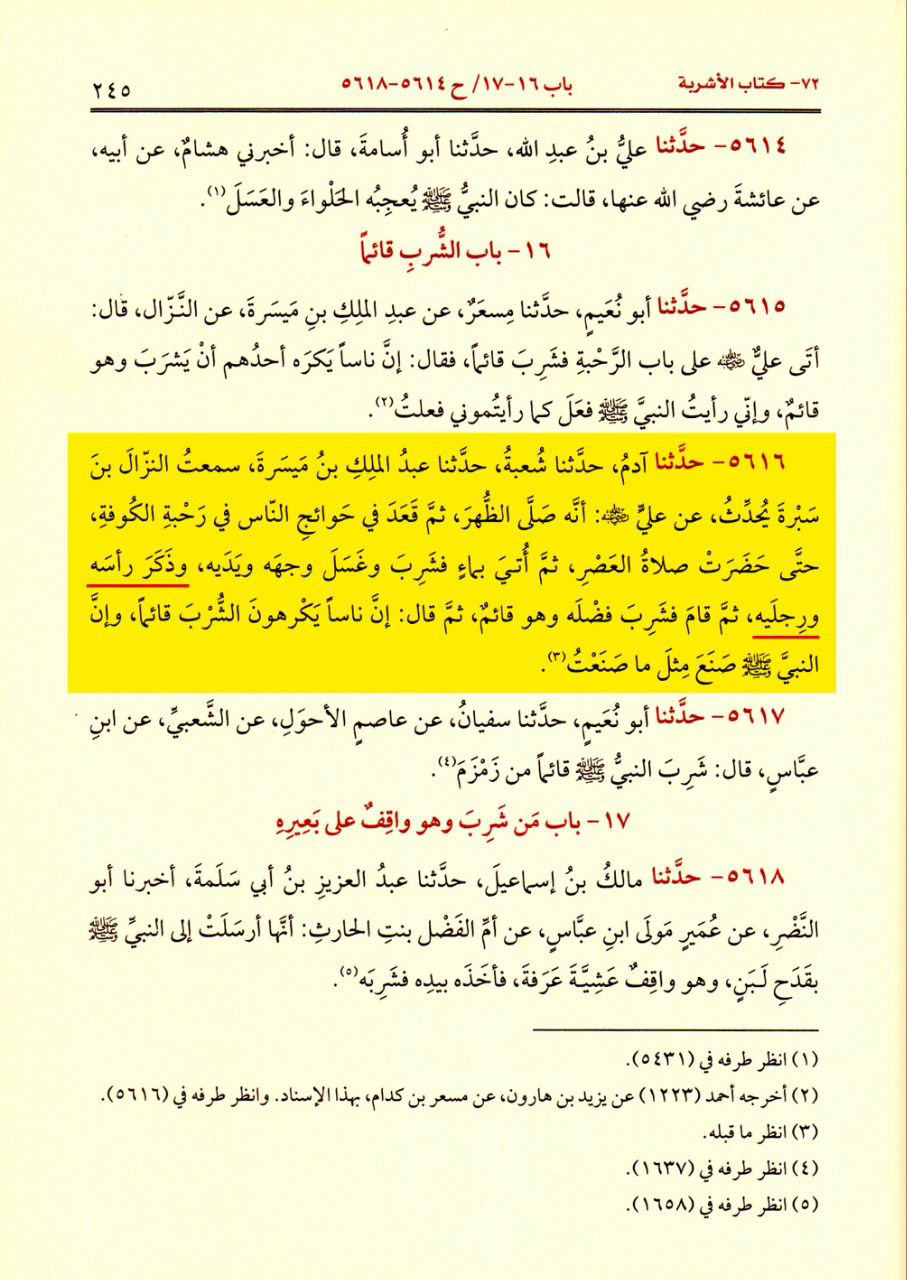 ٧٢- كتاب الأشربة باب ١٦-١٧/ ح ٥٦١٤-٥٦١٨ ٢٤٥
٥٦١٤- حدَّثنا عليُّ بنُ عبدِ الله، حدَّثنا أبو أُسامةَ، قال: أخبرني هشامٌ، عن أبيه،
عن عائشةَ رضي الله عنها، قالت: كان النبيُّ ﷺ يُعجِبُه الحَلْواءَ والعَسَلَ(١).
١٦- باب الشُّربِ قائماً
٥٦١٥- حدَّثنا أبو نُعَيمٍ، حدَّثنا مِسعَرٌ، عن عبدِ الملِكِ بنِ مَيسَرةَ، عن النَّزّال، قال:
أتَى عليٌّ ﵁ على باب الرَّحْبةِ فشَرِبَ قائماً، فقال: إنَّ ناساً يَكرَه أحدُهم أنْ يَشرَبَ وهو
قائمٌ، وإنّي رأيتُ النبيَّ ﷺ فعَلَ كما رأيتُموني فعلتُ(٢).
٥٦١٦- حدَّثنا آدمُ، حدَّثنا شُعبةُ، حدَّثنا عبدُ الملِكِ بنُ مَيسَرةَ، سمعتُ النزّالَ بنَ
سَبْرةَ يُحدِّثُ، عن عليٍّ ﵁: أنَّه صَلَّى الظُّهرَ، ثمَّ قَعَدَ في حَوائجِ النّاس في رَحْبةِ الكُوفةِ،
حتَّى حَضَرَتْ صلاةُ العَصْرِ، ثمَّ أُتيَ بماءٍ فشَرِبَ وغَسَلَ وجهَه ويَدَيه، وذَكَرَ رأسَه
ورِجلَيه، ثمَّ قامَ فشَرِبَ فضْلَه وهو قائمٌ، ثمَّ قال: إنَّ ناساً يَكْرهونَ الشُّرْبَ قائماً، وإنَّ
النبيَّ ﷺ صَنَعَ مِثلَ ما صَنَعْتُ(٣).
٥٦١٧- حدَّثنا أبو نُعَيمٍ، حدَّثنا سفيانُ، عن عاصمٍ الأحوَلِ، عن الشَّعبيِّ، عن ابنِ
عبَّاسٍ، قال: شَرِبَ النبيُّ ﷺ قائماً من زَمْزَمَ(٤).
١٧- باب مَن شَرِبَ وهو واقِفٌ على بَعِيرِهِ
٥٦١٨- حدَّثنا مالكُ بنُ إسماعيلَ، حدَّثنا عبدُ العزيزِ بنُ أبي سَلَمةَ، أخبرنا أبو
النَّضْرِ، عن عُمَيرٍ مَولَى ابنِ عبَّاسٍ، عن أمِّ الفَضْل بنتِ الحارثِ: أنَّها أرسَلَتْ إلى النبيِّ ﷺ
بقَدَحِ لَبَنٍ، وهو واقِفٌ عَشِيَّةَ عَرَفةَ، فأخَذَه بيدِه فشَرِبَه(٥).
(١) انظر طرفه في (٥٤٣١).
(٢) أخرجه أحمد (١٢٢٣) عن يزيد بن هارون، عن مسعر بن كدام، بهذا الإسناد. وانظر طرفه في (٥٦١٦).
(٣) انظر ما قبله.
(٤) انظر طرفه في (١٦٣٧).
(٥) انظر طرفه في (١٦٥٨).